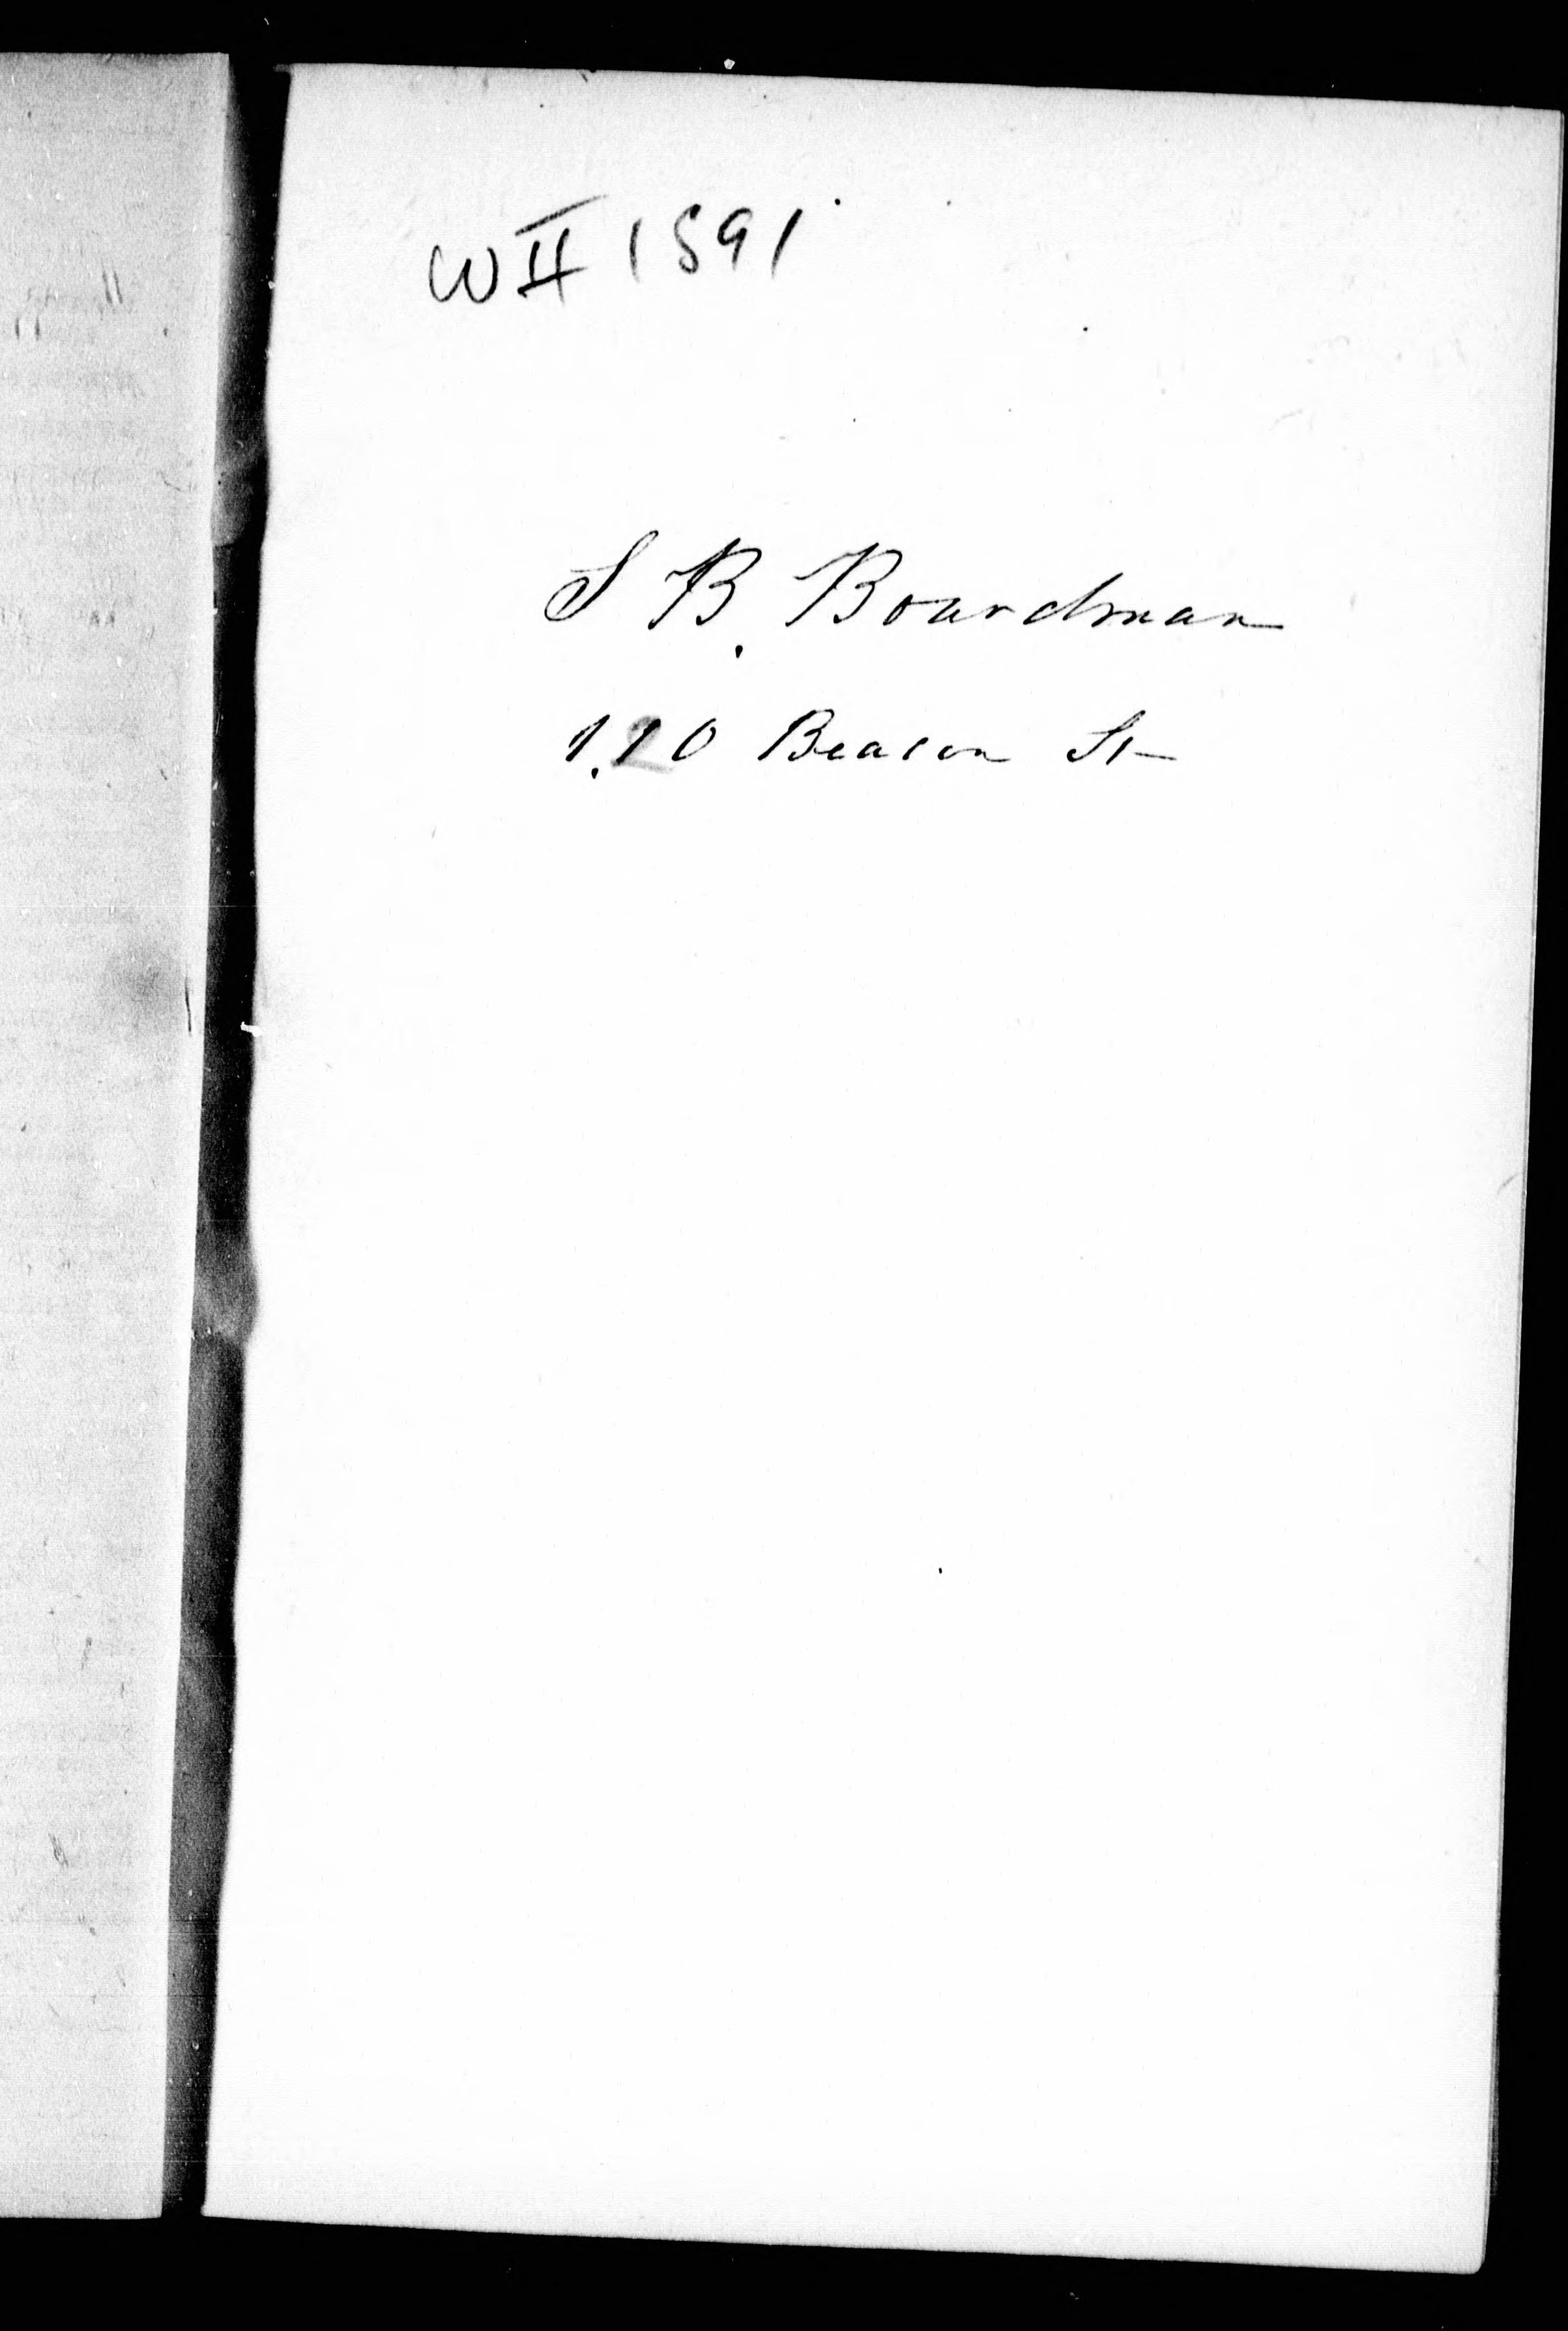 W II 1891
S B. Boardman
120 Beacon St